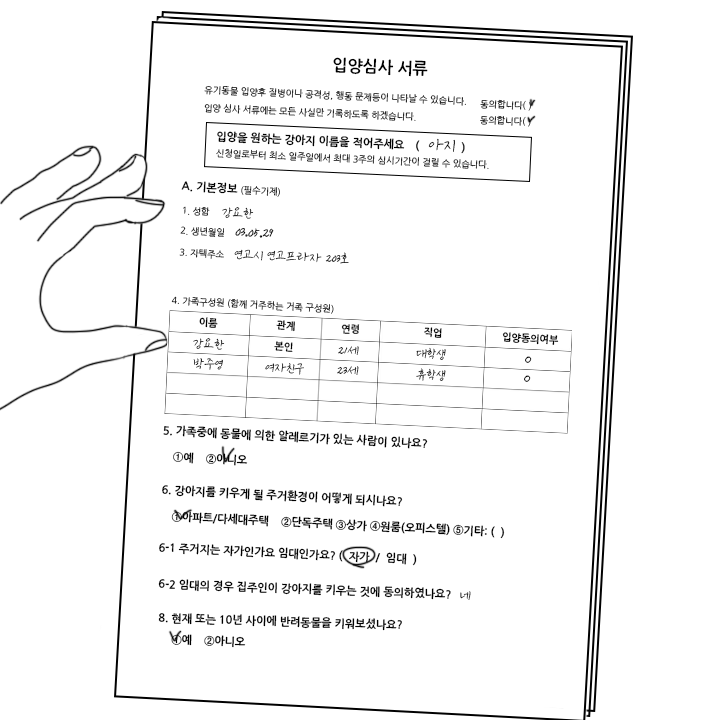 입양심사 서류
유기동물 입양후 질병이나 공격성, 행동 문제등이 나타날 수 있습니다. 동의합니다(✓
입양 심사 서류에는 모든 사실만 기록하도록 하겠습니다. 동의합니다(✓
입양을 원하는 강아지 이름을 적어주세요 ( 아지 )
신청일로부터 최소 일주일에서 최대 3주의 심시기간이 걸릴 수 있습니다.
A. 기본정보 (필수기제)
1. 성함 강요한
2. 생년월일 03.05.29
3. 자택주소 연고시 연고프라자 203호
4. 가족구성원 (함께 거주하는 거족 구성원)
이름 관계 연령 직업 입양동의여부
강요한 본인 21세 대학생 O
박주영 여자친구 23세 휴학생 O
5. 가족중에 동물에 의한 알레르기가 있는 사람이 있나요?
①예 ②아니오
6. 강아지를 키우게 될 주거환경이 어떻게 되시나요?
①아파트/다세대주택 ②단독주택 ③상가 ④원룸(오피스텔) ⑤기타: ( )
6-1 주거지는 자가인가요 임대인가요? ( 자가 / 임대 )
6-2 임대의 경우 집주인이 강아지를 키우는 것에 동의하였나요? 네
8. 현재 또는 10년 사이에 반려동물을 키워보셨나요?
①예 ②아니오